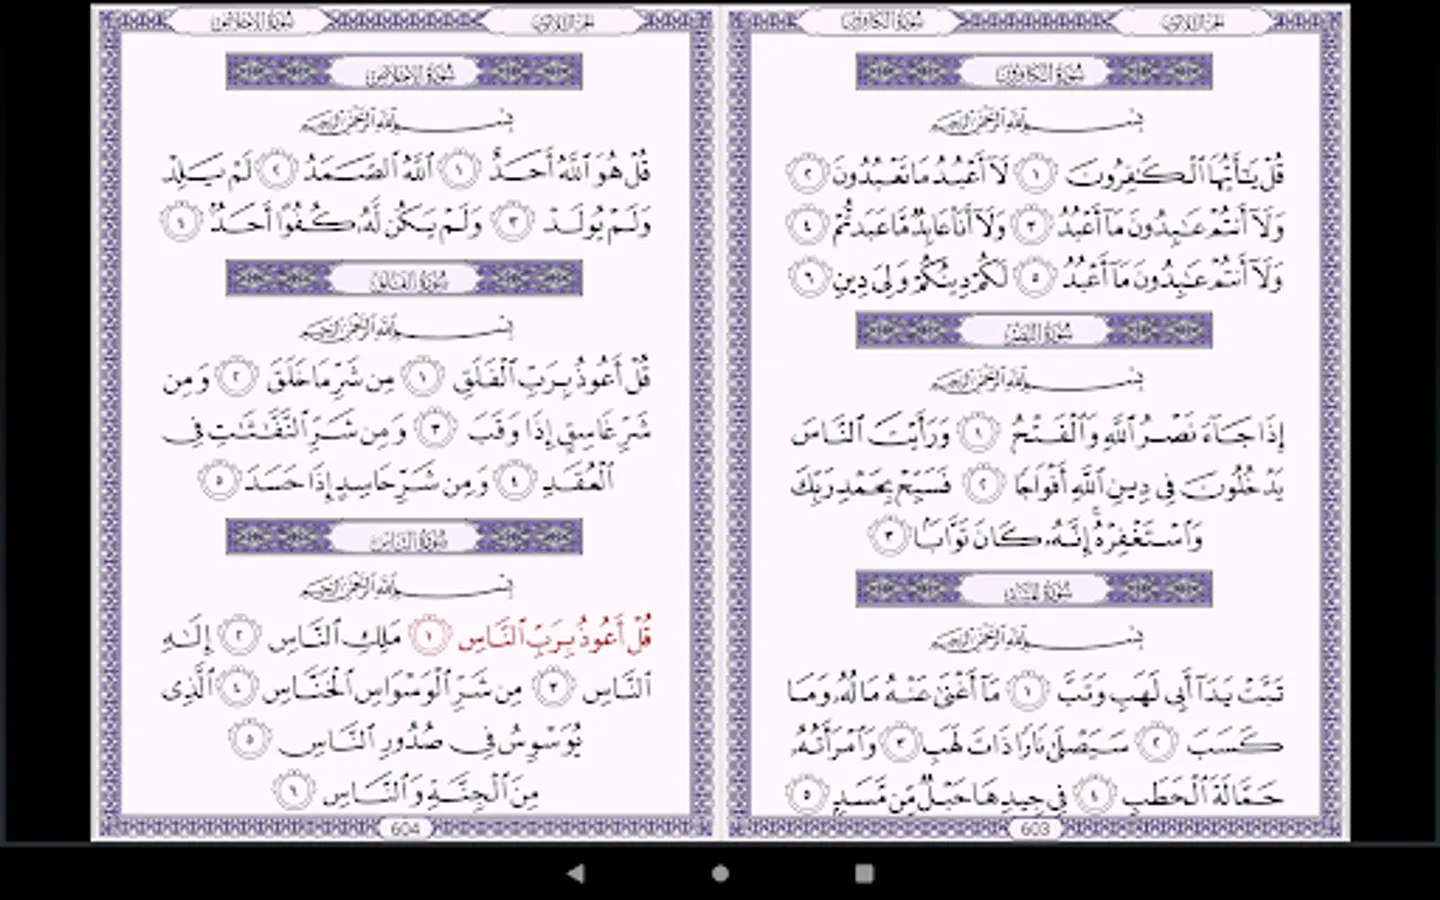 الجزء الثلاثون
سورة الكافرون
سُورَةُ الكَافِرُونَ
بِسْمِ ٱللَّهِ ٱلرَّحْمَٰنِ ٱلرَّحِيمِ
قُلْ يَٰٓأَيُّهَا ٱلْكَٰفِرُونَ ١ لَآ أَعْبُدُ مَا تَعْبُدُونَ ٢
وَلَآ أَنتُمْ عَٰبِدُونَ مَآ أَعْبُدُ ٣ وَلَآ أَنَا۠ عَابِدٌ مَّا عَبَدتُّمْ ٤
وَلَآ أَنتُمْ عَٰبِدُونَ مَآ أَعْبُدُ ٥ لَكُمْ دِينُكُمْ وَلِىَ دِينِ ٦
سُورَةُ النَّصْرِ
بِسْمِ ٱللَّهِ ٱلرَّحْمَٰنِ ٱلرَّحِيمِ
إِذَا جَآءَ نَصْرُ ٱللَّهِ وَٱلْفَتْحُ ١ وَرَأَيْتَ ٱلنَّاسَ
يَدْخُلُونَ فِى دِينِ ٱللَّهِ أَفْوَاجًا ٢ فَسَبِّحْ بِحَمْدِ رَبِّكَ
وَٱسْتَغْفِرْهُ ۚ إِنَّهُۥ كَانَ تَوَّابًۢا ٣
سُورَةُ المَسَدِ
بِسْمِ ٱللَّهِ ٱلرَّحْمَٰنِ ٱلرَّحِيمِ
تَبَّتْ يَدَآ أَبِى لَهَبٍ وَتَبَّ ١ مَآ أَغْنَىٰ عَنْهُ مَالُهُۥ وَمَا
كَسَبَ ٢ سَيَصْلَىٰ نَارًا ذَاتَ لَهَبٍ ٣ وَٱمْرَأَتُهُۥ
حَمَّالَةَ ٱلْحَطَبِ ٤ فِى جِيدِهَا حَبْلٌ مِّن مَّسَدٍۭ ٥
603
الجزء الثلاثون
سورة الإخلاص
سُورَةُ الإِخْلَاصِ
بِسْمِ ٱللَّهِ ٱلرَّحْمَٰنِ ٱلرَّحِيمِ
قُلْ هُوَ ٱللَّهُ أَحَدٌ ١ ٱللَّهُ ٱلصَّمَدُ ٢ لَمْ يَلِدْ
وَلَمْ يُولَدْ ٣ وَلَمْ يَكُن لَّهُۥ كُفُوًا أَحَدٌۢ ٤
سُورَةُ الفَلَقِ
بِسْمِ ٱللَّهِ ٱلرَّحْمَٰنِ ٱلرَّحِيمِ
قُلْ أَعُوذُ بِرَبِّ ٱلْفَلَقِ ١ مِن شَرِّ مَا خَلَقَ ٢ وَمِن
شَرِّ غَاسِقٍ إِذَا وَقَبَ ٣ وَمِن شَرِّ ٱلنَّفَّٰثَٰتِ فِى
ٱلْعُقَدِ ٤ وَمِن شَرِّ حَاسِدٍ إِذَا حَسَدَ ٥
سُورَةُ النَّاسِ
بِسْمِ ٱللَّهِ ٱلرَّحْمَٰنِ ٱلرَّحِيمِ
قُلْ أَعُوذُ بِرَبِّ ٱلنَّاسِ ١ مَلِكِ ٱلنَّاسِ ٢ إِلَٰهِ
ٱلنَّاسِ ٣ مِن شَرِّ ٱلْوَسْوَاسِ ٱلْخَنَّاسِ ٤ ٱلَّذِى
يُوَسْوِسُ فِى صُدُورِ ٱلنَّاسِ ٥
مِنَ ٱلْجِنَّةِ وَٱلنَّاسِ ٦
604